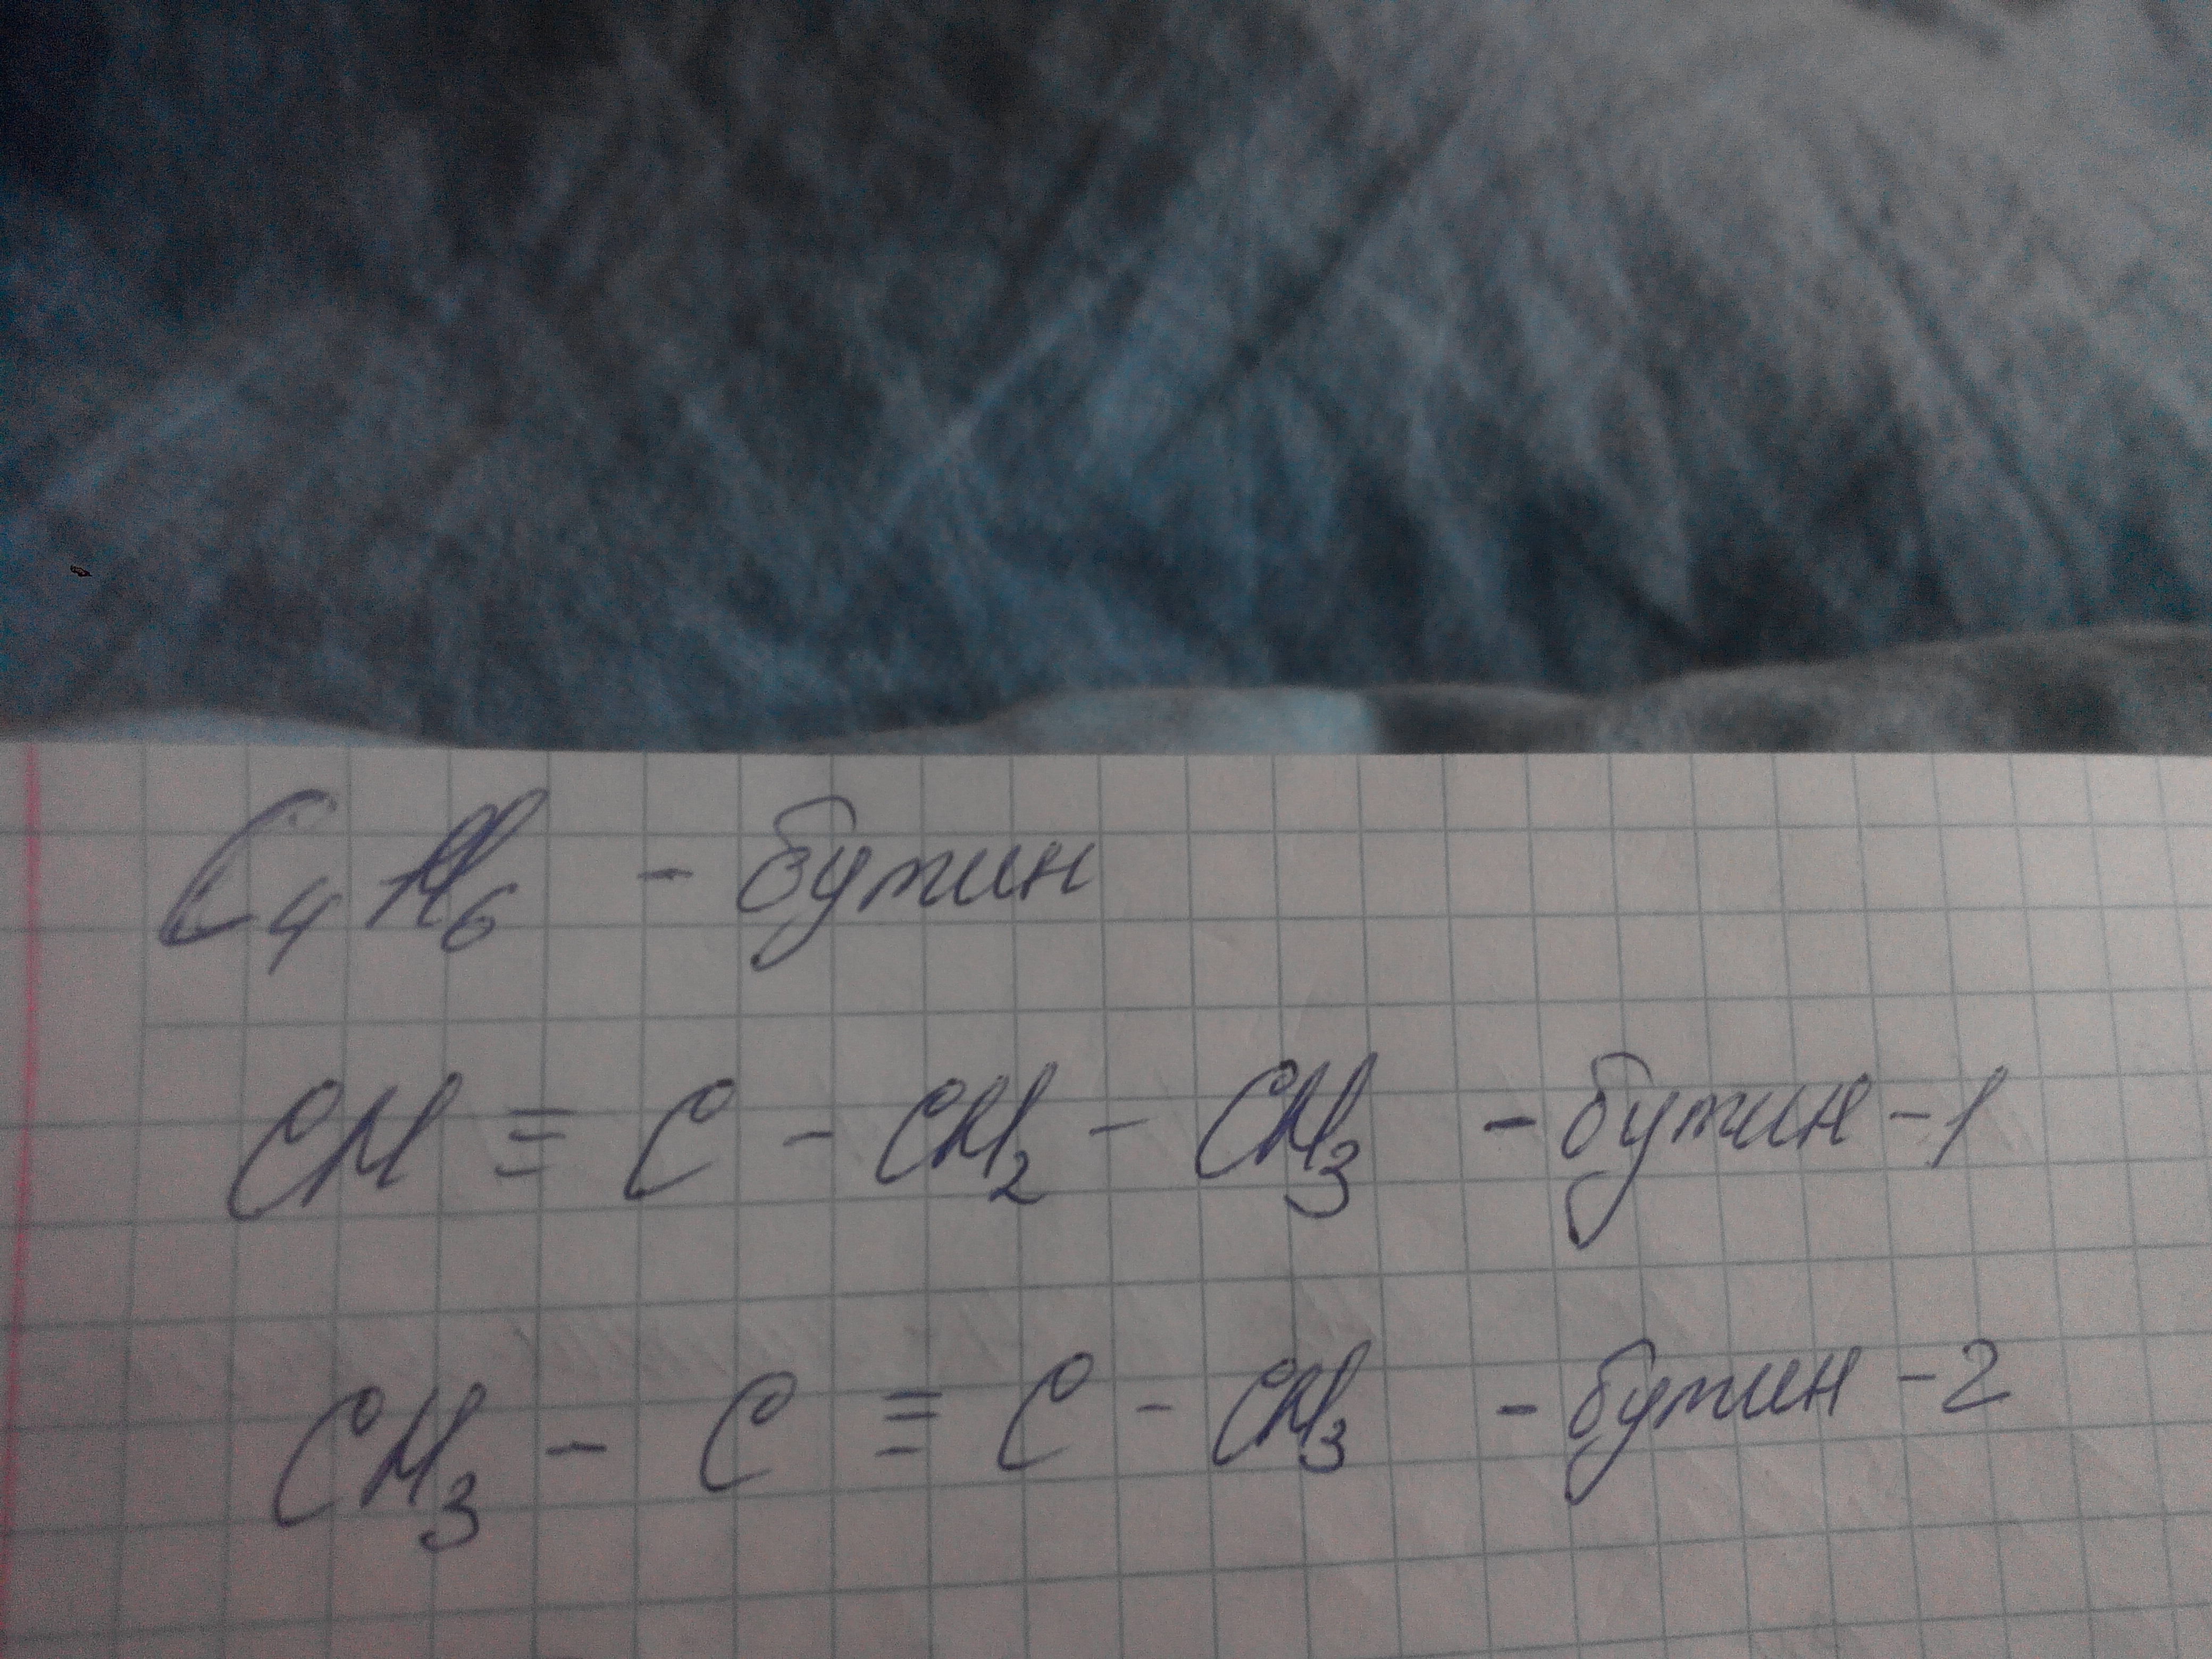 C₄H₆ - бутин
CH ≡ C - CH₂ - CH₃ - бутин - 1
CH₃ - C ≡ C - CH₃ - бутин - 2